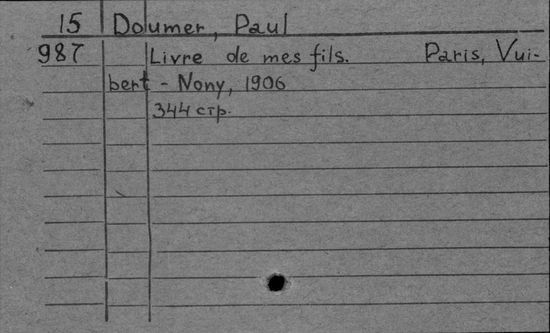 15 Doumer, Paul
987 Livre de mes fils. Paris, Vui-
bert - Nony, 1906
344 стр.